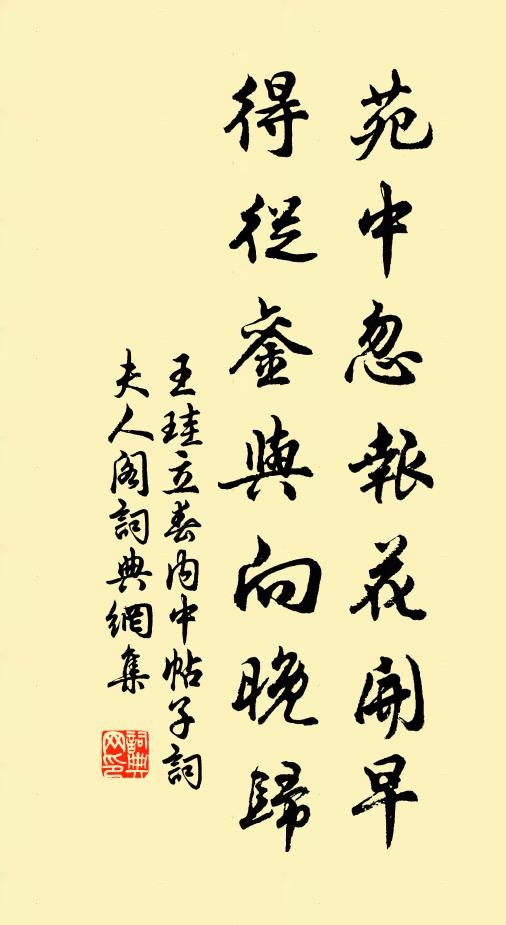 苑中忽報花開早
得從鑾輿向晚歸
王珪立春内中帖子詞
夫人閣詞典網集
詞典網印